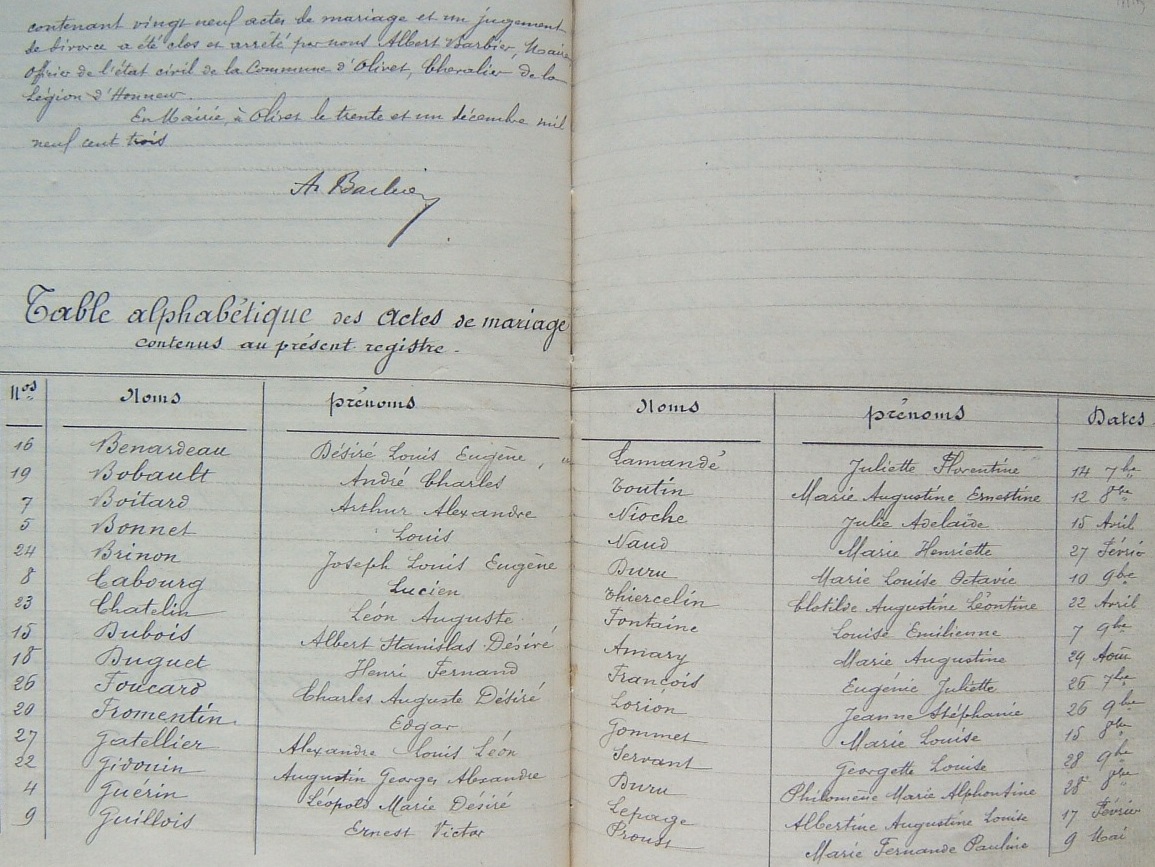 contenant vingt neuf actes de mariage et un jugement
de divorce a été clos et arrêté par nous Albert Barbier, Maire,
Officier de l'état civil de la Commune d'Olivet, Chevalier de la
Légion d'Honneur.
En Mairie, à Olivet le trente et un décembre mil
neuf cent trois
A. Barbier
Table alphabétique des actes de mariage
contenus au présent registre.
Nos Noms prénoms Noms prénoms Dates
16 Benardeau Désiré Louis Eugène Lamandé Juliette Florentine 14 7bre
19 Bobault André Charles Toutin Marie Augustine Ernestine 12 8bre
7 Boitard Arthur Alexandre Nioche Julie Adelaïde 15 Avril
5 Bonnet Louis Naud Marie Henriette 27 Févrie
24 Brinon Joseph Louis Eugène Buru Marie Louise Octavie 10 9bre
8 Cabourg Lucien Thiercelin Clotilde Augustine Léontine 22 Avril
23 Chatelin Léon Auguste Fontaine Louise Emilienne 7 9bre
15 Dubois Albert Stanislas Désiré Amary Marie Augustine 29 Août
18 Duguet Henri Fernand François Eugénie Juliette 26 7bre
26 Foucard Charles Auguste Désiré Lorion Jeanne Stéphanie 26 9bre
20 Fromentin Edgar Gommet Marie Louise 15 8bre
27 Gatellier Alexandre Louis Léon Servant Georgette Louise 28 9bre
22 Gidouin Augustin Georges Alexandre Buru Philomène Marie Alphontine 28 8bre
4 Guerin Léopold Marie Désiré Lepage Albertine Augustine Louise 17 Février
9 Guillois Ernest Victor Proust Marie Fernande Pauline 9 Mai